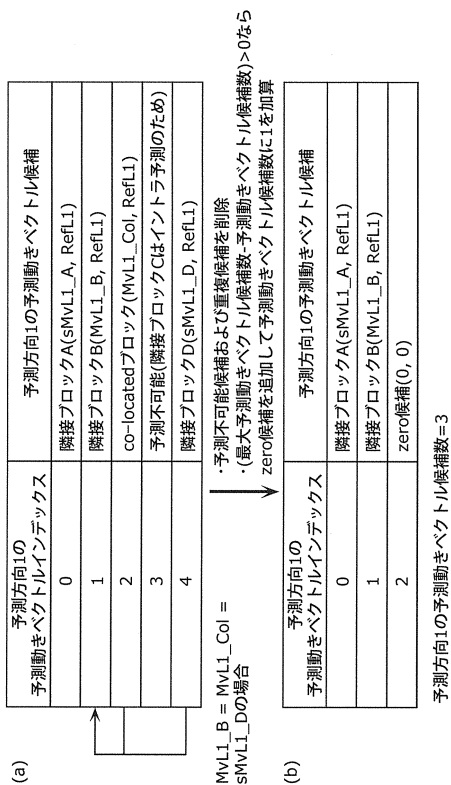 (a)
予測方向1の
予測動きベクトルインデックス
予測方向1の予測動きベクトル候補
0
隣接ブロックA(sMvL1_A, RefL1)
1
隣接ブロックB(MvL1_B, RefL1)
2
co-locatedブロック(MvL1_Col, RefL1)
3
予測不可能(隣接ブロックCはイントラ予測のため)
4
隣接ブロックD(sMvL1_D, RefL1)
MvL1_B = MvL1_Col =
sMvL1_Dの場合
・予測不可能候補および重複候補を削除
・(最大予測動きベクトル候補数-予測動きベクトル候補数)>0なら
zero候補を追加して予測動きベクトル候補数に1を加算
(b)
予測方向1の
予測動きベクトルインデックス
予測方向1の予測動きベクトル候補
0
隣接ブロックA(sMvL1_A, RefL1)
1
隣接ブロックB(MvL1_B, RefL1)
2
zero候補(0, 0)
予測方向1の予測動きベクトル候補数=3